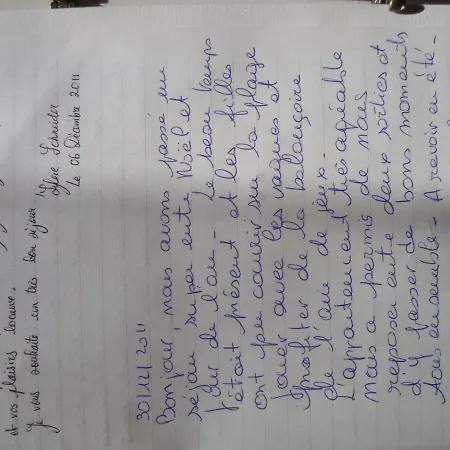 et vos plaisirs
je vous souhaite un très bon séjour
Sylvie Schneider
Le 06 Décembre 2011
30/12/2011
Bonjour, nous avons passé un
séjour super entre Noël et
jour de l'an - Le beau temps
était présent et les filles
ont pu courir sur la plage
jouer avec les vagues et
profiter de la balançoire
de l'aire de jeux.
L'appartement très agréable
nous a permis de nous
reposer entre deux sorties et
d'y passer de bons moments
tous ensemble - A revoir en été -